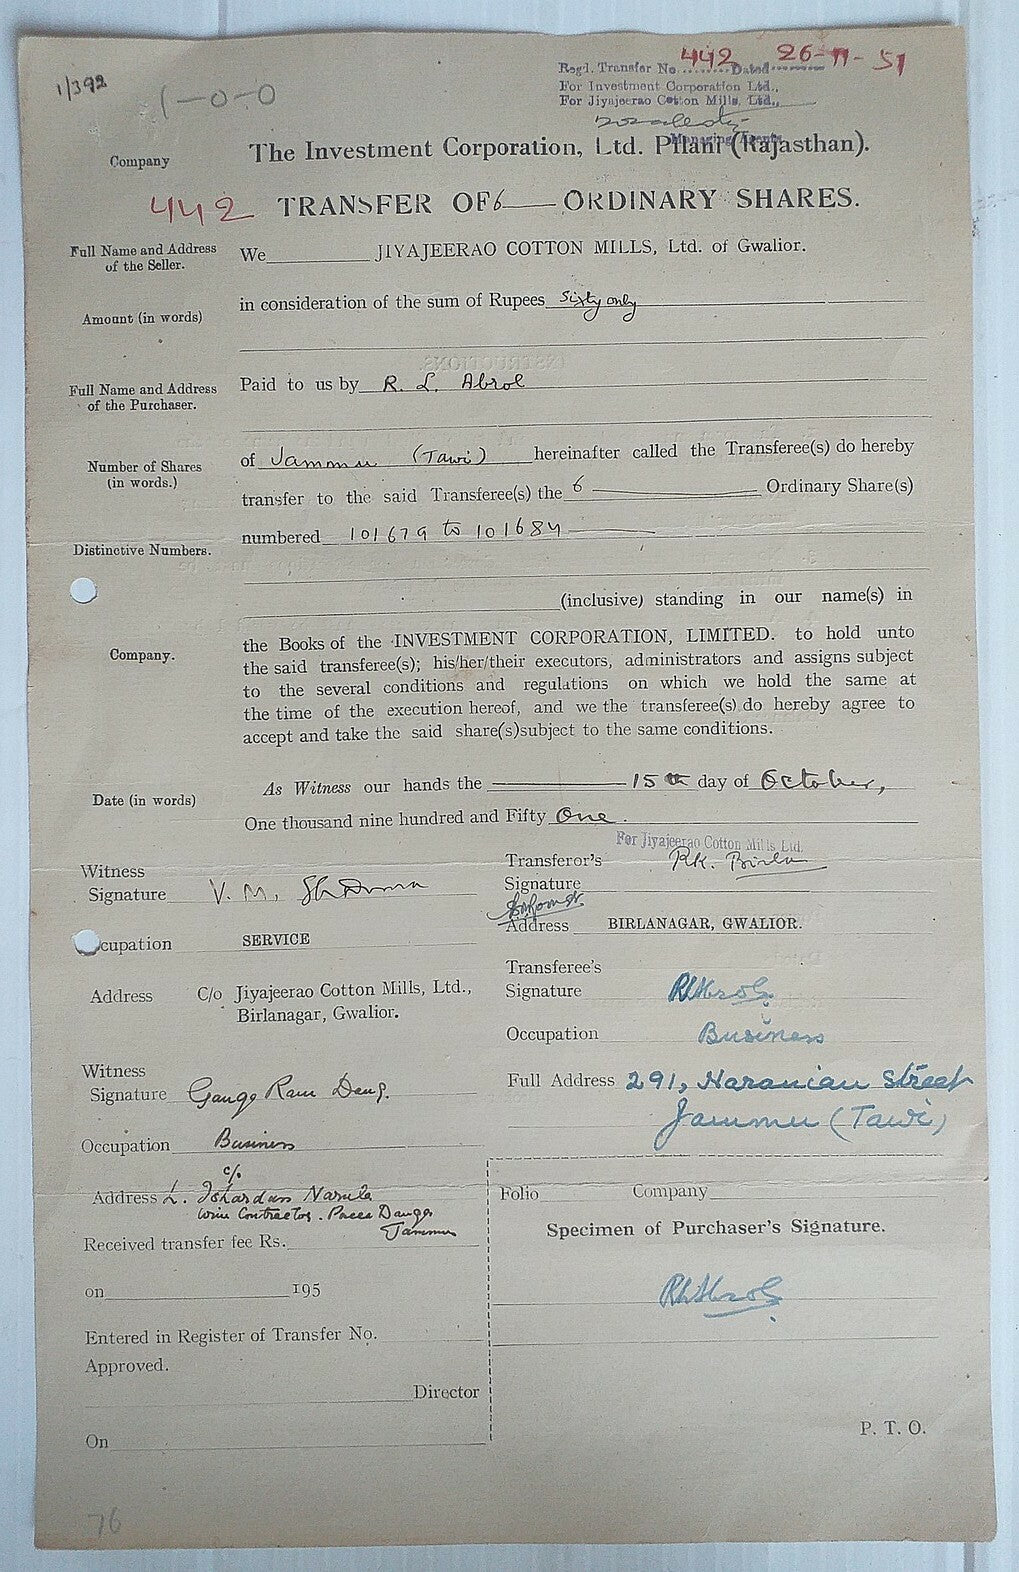 1/392
1-0-0
Regd. Transfer No. 442 Dated 26-11-51
For Investment Corporation Ltd.,
For Jiyajeerao Cotton Mills, Ltd.,
Managing Agents
Company The Investment Corporation, Ltd. Pilani (Rajasthan).
442 TRANSFER OF 6 ORDINARY SHARES.
Full Name and Address of the Seller. We JIYAJEERAO COTTON MILLS, Ltd. of Gwalior.
Amount (in words) in consideration of the sum of Rupees Sixty only
Full Name and Address of the Purchaser. Paid to us by R. L. Abrol
Number of Shares (in words.) of Jammu (Tawi) hereinafter called the Transferee(s) do hereby
transfer to the said Transferee(s) the 6 Ordinary Share(s)
Distinctive Numbers. numbered 101679 to 101684
(inclusive) standing in our name(s) in
Company. the Books of the INVESTMENT CORPORATION, LIMITED. to hold unto
the said transferee(s); his/her/their executors, administrators and assigns subject
to the several conditions and regulations on which we hold the same at
the time of the execution hereof, and we the transferee(s) do hereby agree to
accept and take the said share(s)subject to the same conditions.
Date (in words) As Witness our hands the 15th day of October,
One thousand nine hundred and Fifty One.
For Jiyajeerao Cotton Mills Ltd.
Witness
Signature V. M. Sharma
Occupation SERVICE
Address C/o Jiyajeerao Cotton Mills, Ltd.,
Birlanagar, Gwalior.
Transferor's
Signature RK. Birla
Address BIRLANAGAR, GWALIOR.
Transferee's
Signature RLAbrol
Occupation Business
Full Address 291, Naranian Street
Jammu (Tawi)
Witness
Signature Ganga Ram
Occupation Business
c/o
Address L. Ishardass Narula
Contractor. Pacca Danga
Jammu
Received transfer fee Rs.
on 195
Entered in Register of Transfer No.
Approved.
Director
On
Folio Company
Specimen of Purchaser's Signature.
RLAbrol
P. T. O.
76